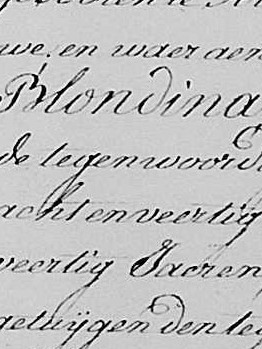 uwe, en waer aen
Blondina
de tegenwoord
acht en veertig
veertig Jaeren
getuijgen den te